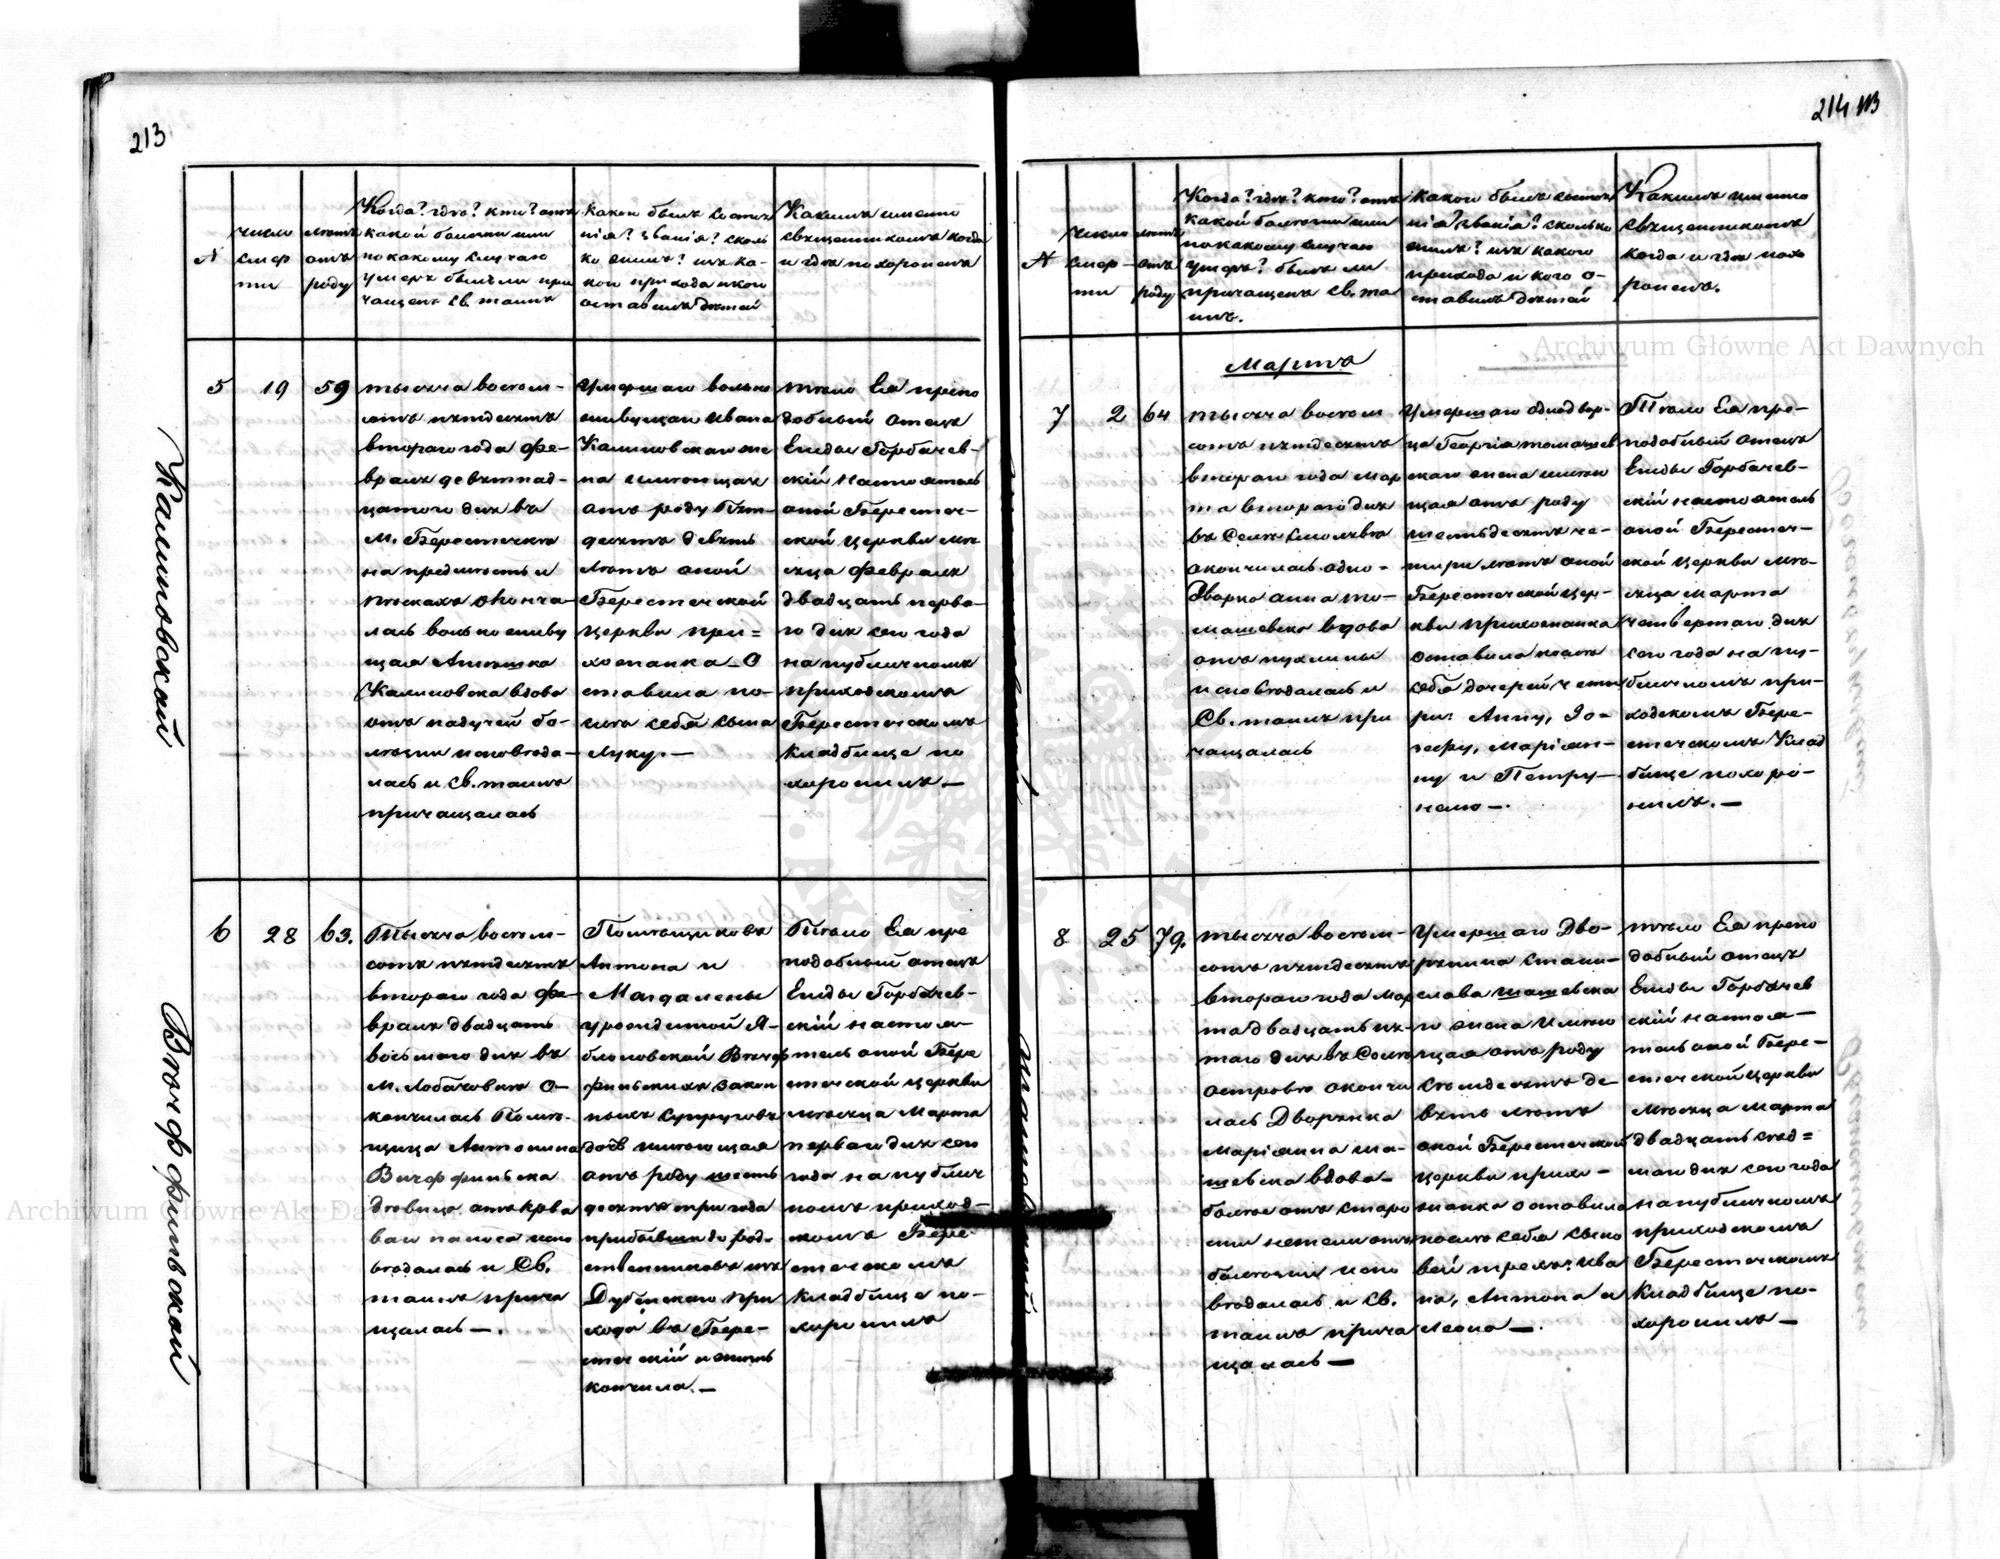 213
А
число
смер
ти
лѣтъ
отъ
роду
Когда? гдѣ? кто? отъ
какой болѣзни или
по какому случаю
умеръ былъ ли при
чащенъ св. таинъ
Какого былъ состоя
нія? званія? сколь
ко жилъ? изъ ка-
кого прихода и кого
оставилъ дѣтей
Какимъ именно
священникомъ когда
и гдѣ похороненъ
Калиновской
5
19
59
тысяча восем-
сотъ пятдесятъ
втораго года Фе-
враля девятнад-
цатого дня въ
М. Берестечкѣ
на предмѣстьи
пѣскахъ оконча-
лась вольно живу
щая Антошка
Калиновска вдова
отъ падучей бо-
лѣзни исповѣда-
лась и св. таинъ
причащалась
Умершаго вольно
живущаго Ивана
Калиновскаго же
на имѣющая
отъ роду Пят-
десятъ девять
лѣтъ оной
Берестечской
Церкви при=
хожанка О
ставила по-
слѣ себя сына
Луку.—
тѣло Ея препо
добный отецъ
Емилъ Горбачев-
скій Настоятель
оной Берестеч-
ской Церкви мѣ
сяца Февраля
двадцать перва-
го дня сего года
на публичномъ
приходскомъ
Берестечскомъ
Кладбище по
хоронилъ —
Винцфинской
6
28
63.
Тысяча восем-
сотъ пятдесятъ
втораго года Фе-
враля двадцать
восьмаго дня въ
М. Лобачовкѣ о-
кончилась Помѣ-
щица Антонина
дѣвица отъ крова
ваго паноса испо
вѣдалась и Св.
таинъ прича
щалась —.
Помѣщиковъ
Антона и
Магдалены
урожденной Я-
блоновской
законныхъ супруговъ
дочь имѣющая
отъ роду шесть
десятъ три года
прибывшая до род-
ственниковъ изъ
Дубенскаго при
хода въ Бере-
стечскій и жизнь
кончила.—
Тѣло Ея пре
подобный отецъ
Емилъ Горбачев-
скій настоя-
тель оной Бере
стечской церкви
мѣсяца Марта
перваго дня сего
года на публич
номъ приход-
скомъ Бере
стечскомъ
кладбище по-
хоронилъ
214
А
число
смер-
ти
лѣтъ
отъ
роду
Когда? гдѣ? кто? отъ
какой болѣзни или
по какому случаю
умеръ? былъ ли
причащенъ св. та
инъ.
Какого былъ состоя
нія? званія? сколько
жилъ? изъ какого
прихода и кого о-
ставилъ дѣтей
Какимъ именно
священникомъ
когда и гдѣ похо
роненъ.
Мартъ
7
2
64
тысяча восем
сотъ пятдесятъ
втораго года Мар
та втораго дня
въ Селѣ Смолявѣ
окончилась одно-
дворка Анна То-
машевска вдова
отъ пухлины
исповѣдалась и
Св. таинъ при
чащалась
Умершаго однодвор-
ца Георгія Томашев
скаго жена имѣю
щая отъ роду
шестьдесятъ че-
тыри лѣтъ оной
Берестечской цер-
кви прихожанка
оставила послѣ
себя дочерей четы
ри: Анну, Зо-
зефу, Маріян-
ну и Петру-
нелю —.
Тѣло Ея пре-
подобный отецъ
Емилъ Горбачев-
скій настоятель
оной Берестеч-
ской Церкви мѣ-
сяца Марта
четвертаго дня
сего года на пу-
бличномъ при-
ходскомъ Бере-
стечскомъ Клад
бище похоро-
нилъ.—
8
25
79.
тысяча восем-
сотъ пятдесятъ
втораго года Мар
та двадцать пя-
таго дня въ Селѣ
Островѣ окончи
лась Дворянка
Маріянна Ша-
шевска вдова-
болѣе отъ старо
сти нежели отъ
болѣзни испо
вѣдалась и Св.
таинъ прича
щалась —
Умершаго Дво-
рянина Стани-
слава Шашевска
го жена имѣю
щая отъ роду
семдесятъ де
вять лѣтъ
оной Берестечской
церкви прихо-
жанка оставила
послѣ себя сыно
вей трехъ: Ива
на, Антона и
Леона —.
тѣло Ея препо
добный отецъ
Емилъ Горбачев
скій настоя-
тель оной Бере-
стечской церкви
мѣсяца Марта
двадцать сед=
маго дня сего года
на публичномъ
приходскомъ
Берестечскомъ
Кладбище по-
хоронилъ —
Archiwum Główne Akt Dawnych
Archiwum Główne Akt Dawnych